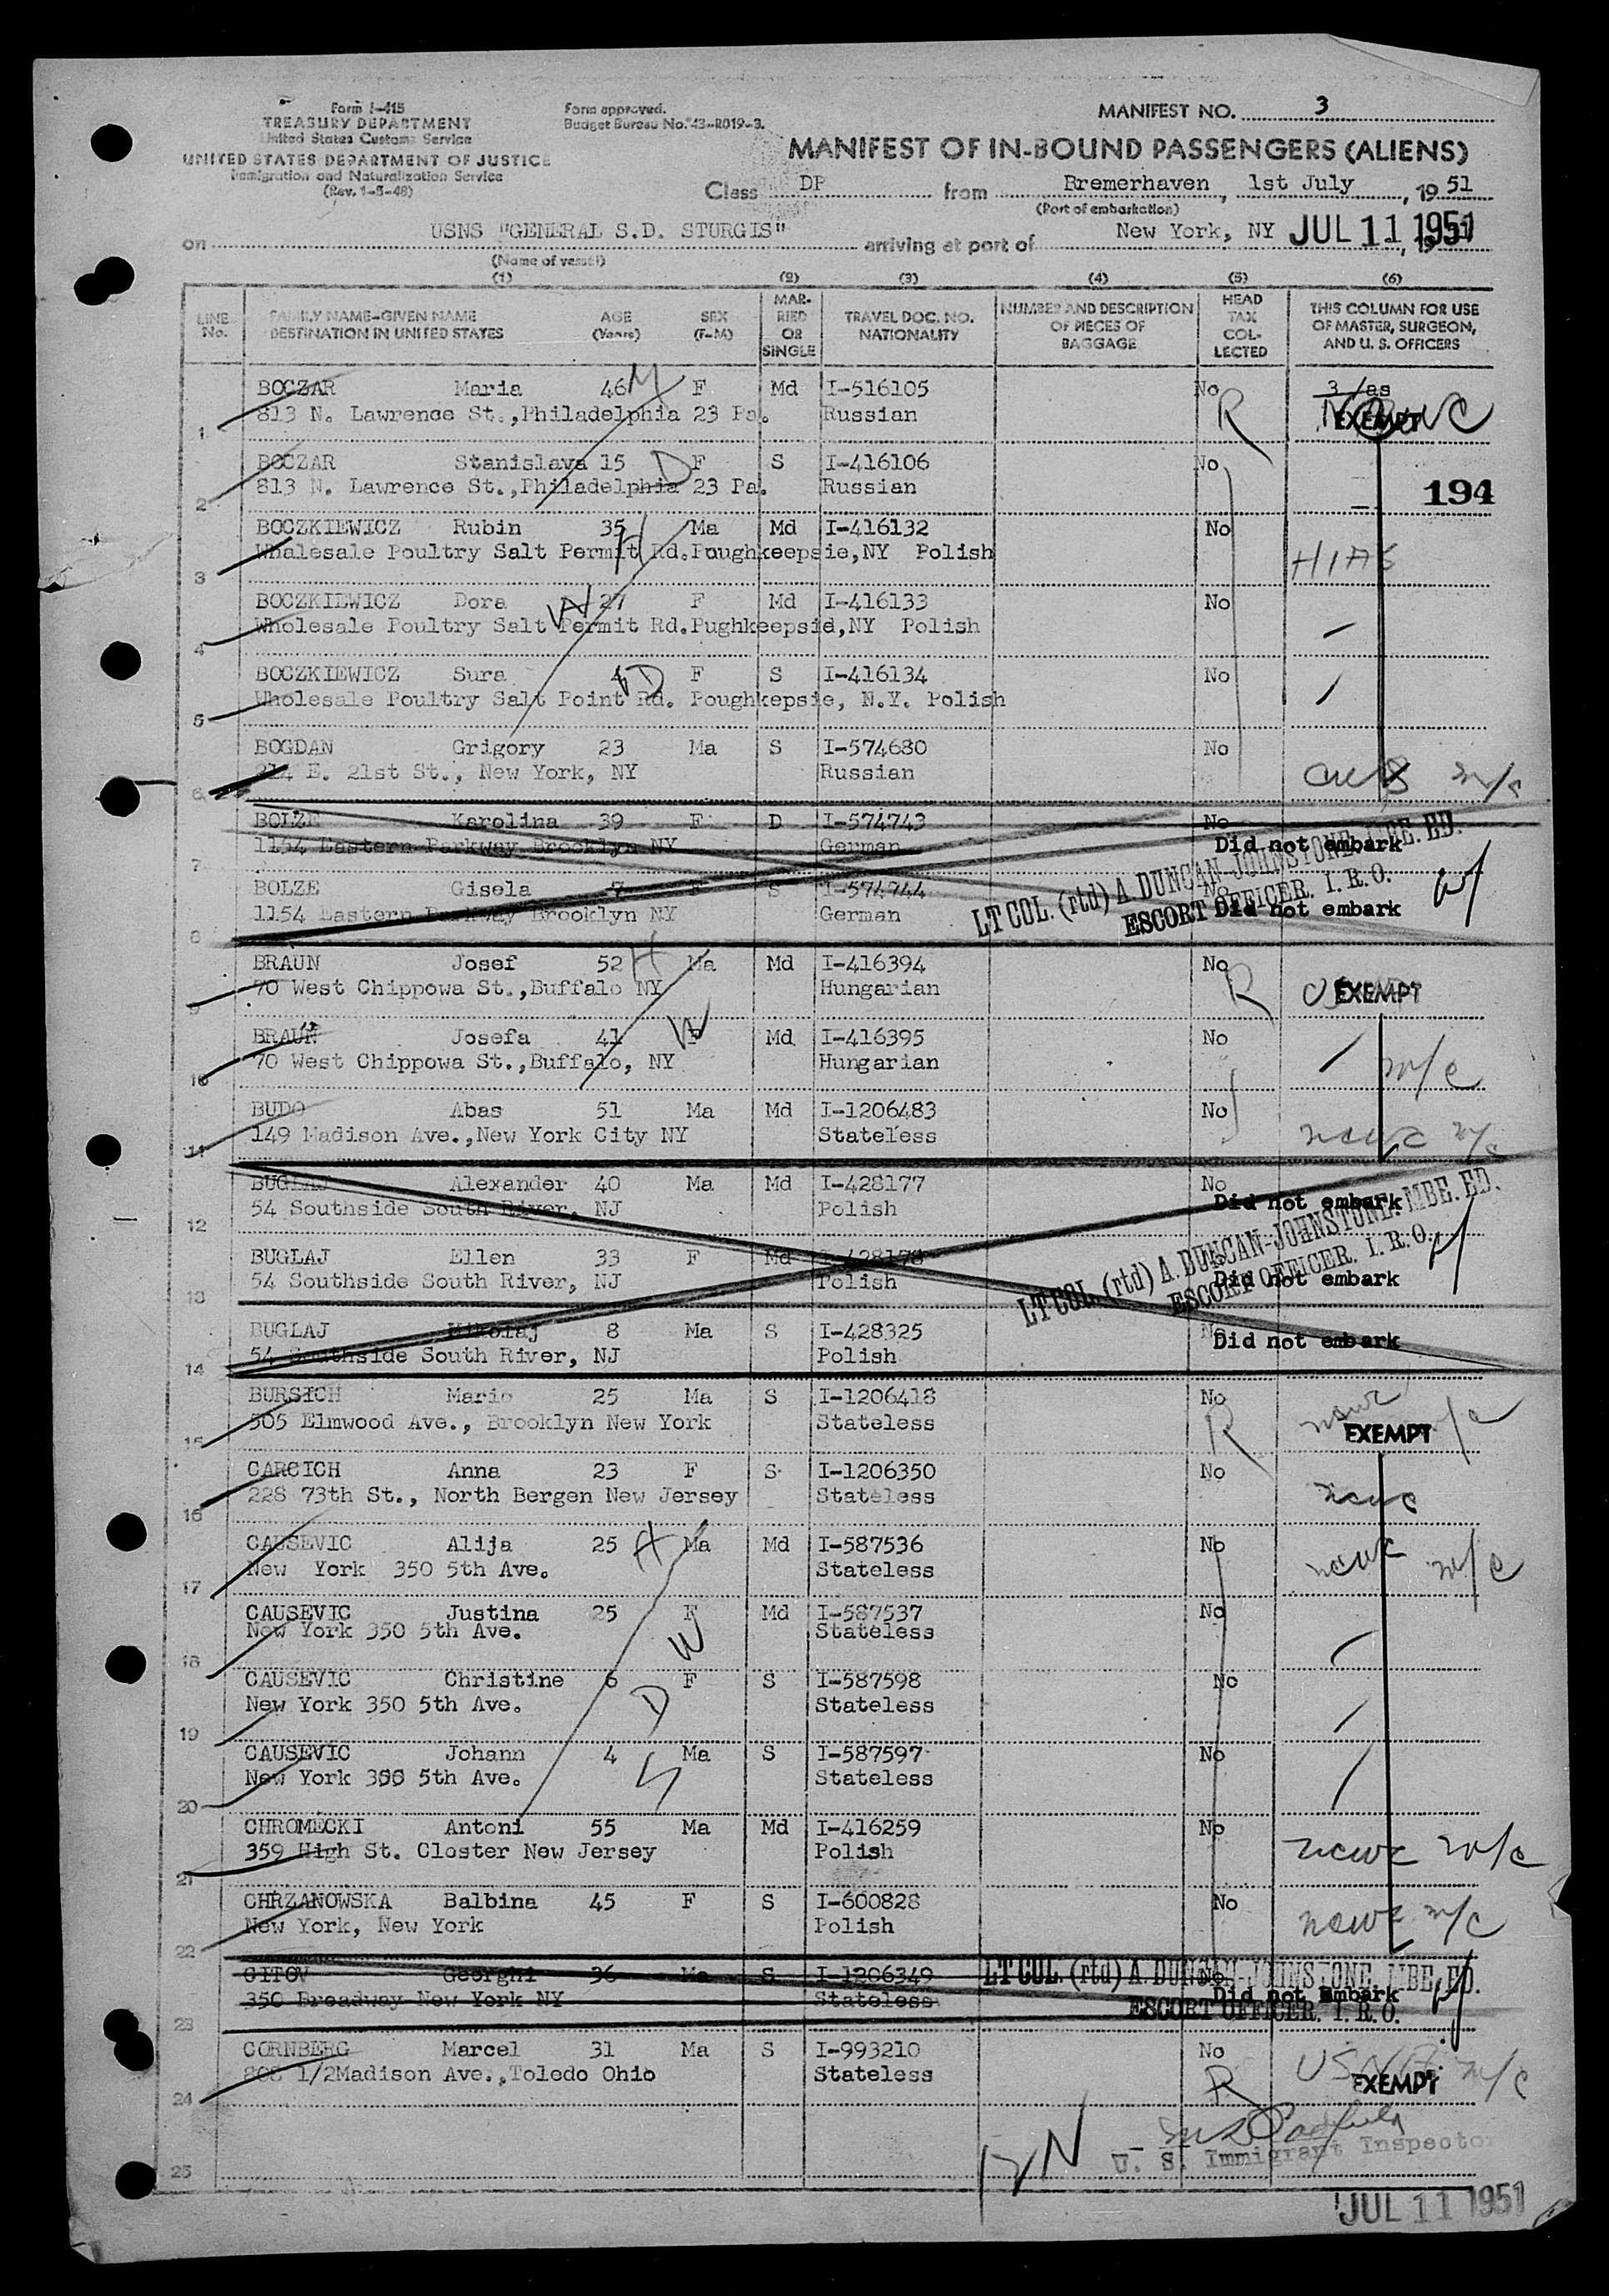 Form I-415
TREASURY DEPARTMENT
United States Customs Service
UNITED STATES DEPARTMENT OF JUSTICE
Immigration and Naturalization Service
(Rev. 1-5-48)
Form approved.
Budget Bureau No. 43-R019-3.
MANIFEST NO. 3
MANIFEST OF IN-BOUND PASSENGERS (ALIENS)
Class DP from Bremerhaven, 1st July, 19 51
(Port of embarkation)
on USNS "GENERAL S.D. STURGIS" arriving at port of New York, NY JUL 11 1951
(Name of vessel)
(1) (2) (3) (4) (5) (6)
LINE No.
FAMILY NAME-GIVEN NAME AGE SEX
DESTINATION IN UNITED STATES (Years) (F-M)
MARRIED OR SINGLE
TRAVEL DOC. NO. NATIONALITY
NUMBER AND DESCRIPTION OF PIECES OF BAGGAGE
HEAD TAX COLLECTED
THIS COLUMN FOR USE OF MASTER, SURGEON, AND U. S. OFFICERS
BOCZAR Maria 46 M F Md I-516105 No
1 813 N. Lawrence St.,Philadelphia 23 Pa. Russian R EXEMPT
BOCZAR Stanislava 15 D F S I-416106 No
2 813 N. Lawrence St.,Philadelphia 23 Pa. Russian 194
BOCZKIEWICZ Rubin 35 H Ma Md I-416132 No
3 Whalesale Poultry Salt Permit Rd.Poughkeepsie,NY Polish HIAS
BOCZKIEWICZ Dora 27 W F Md I-416133 No
4 Wholesale Poultry Salt Permit Rd.Pughkeepsie,NY Polish
BOCZKIEWICZ Sura 4 D F S I-416134 No
5 Wholesale Poultry Salt Point Rd. Poughkepsie, N.Y. Polish
BOGDAN Grigory 23 Ma S I-574680 No
6 214 E. 21st St., New York, NY Russian
BOLZE Karolina 39 F D I-574743 No
7 1154 Eastern Parkway Brooklyn NY German Did not embark
BOLZE Gisela 7 F S I-574744 No
8 1154 Eastern Parkway Brooklyn NY German Did not embark
LT COL. (rtd) A. DUNCAN-JOHNSTONE. MBE. ED.
ESCORT OFFICER. I. R. O.
BRAUN Josef 52 H Ma Md I-416394 No
9 70 West Chippowa St.,Buffalo NY Hungarian R EXEMPT
BRAUN Josefa 41 W F Md I-416395 No
10 70 West Chippowa St.,Buffalo, NY Hungarian m/c
BUDO Abas 51 Ma Md I-1206483 No
11 149 Madison Ave.,New York City NY Stateless ncwc m/c
BUGLAJ Alexander 40 Ma Md I-428177 No
12 54 Southside South River, NJ Polish Did not embark
BUGLAJ Ellen 33 F Md I-428178 No
13 54 Southside South River, NJ Polish Did not embark
LT COL. (rtd) A. DUNCAN-JOHNSTONE. MBE. ED.
ESCORT OFFICER. I. R. O.
BUGLAJ Mikolaj 8 Ma S I-428325 No
14 54 Southside South River, NJ Polish Did not embark
BURSICH Mario 25 Ma S I-1206418 No ncwc
15 505 Elmwood Ave., Brooklyn New York Stateless R EXEMPT m/c
CARCICH Anna 23 F S I-1206350 No
16 228 73th St., North Bergen New Jersey Stateless ncwc
CAUSEVIC Alija 25 H Ma Md I-587536 No
17 New York 350 5th Ave. Stateless ncwc m/c
CAUSEVIC Justina 25 F Md I-587537 No
18 New York 350 5th Ave. W Stateless
CAUSEVIC Christine 6 F S I-587598 No
19 New York 350 5th Ave. D Stateless
CAUSEVIC Johann 4 Ma S I-587597 No
20 New York 350 5th Ave. S Stateless
CHROMECKI Antoni 55 Ma Md I-416259 No
21 359 High St. Closter New Jersey Polish ncwc m/c
CHRZANOWSKA Balbina 45 F S I-600828 No
22 New York, New York Polish ncwc m/c
CITOV Georghi 36 Ma S I-1206349 No
23 350 Broadway New York NY Stateless Did not Embark
LT COL. (rtd) A. DUNCAN-JOHNSTONE. MBE. ED.
ESCORT OFFICER. I. R. O.
CORNBERG Marcel 31 Ma S I-993210 No
24 808 1/2Madison Ave.,Toledo Ohio Stateless R EXEMPT m/c
U. S. Immigrant Inspector
25
JUL 11 1951